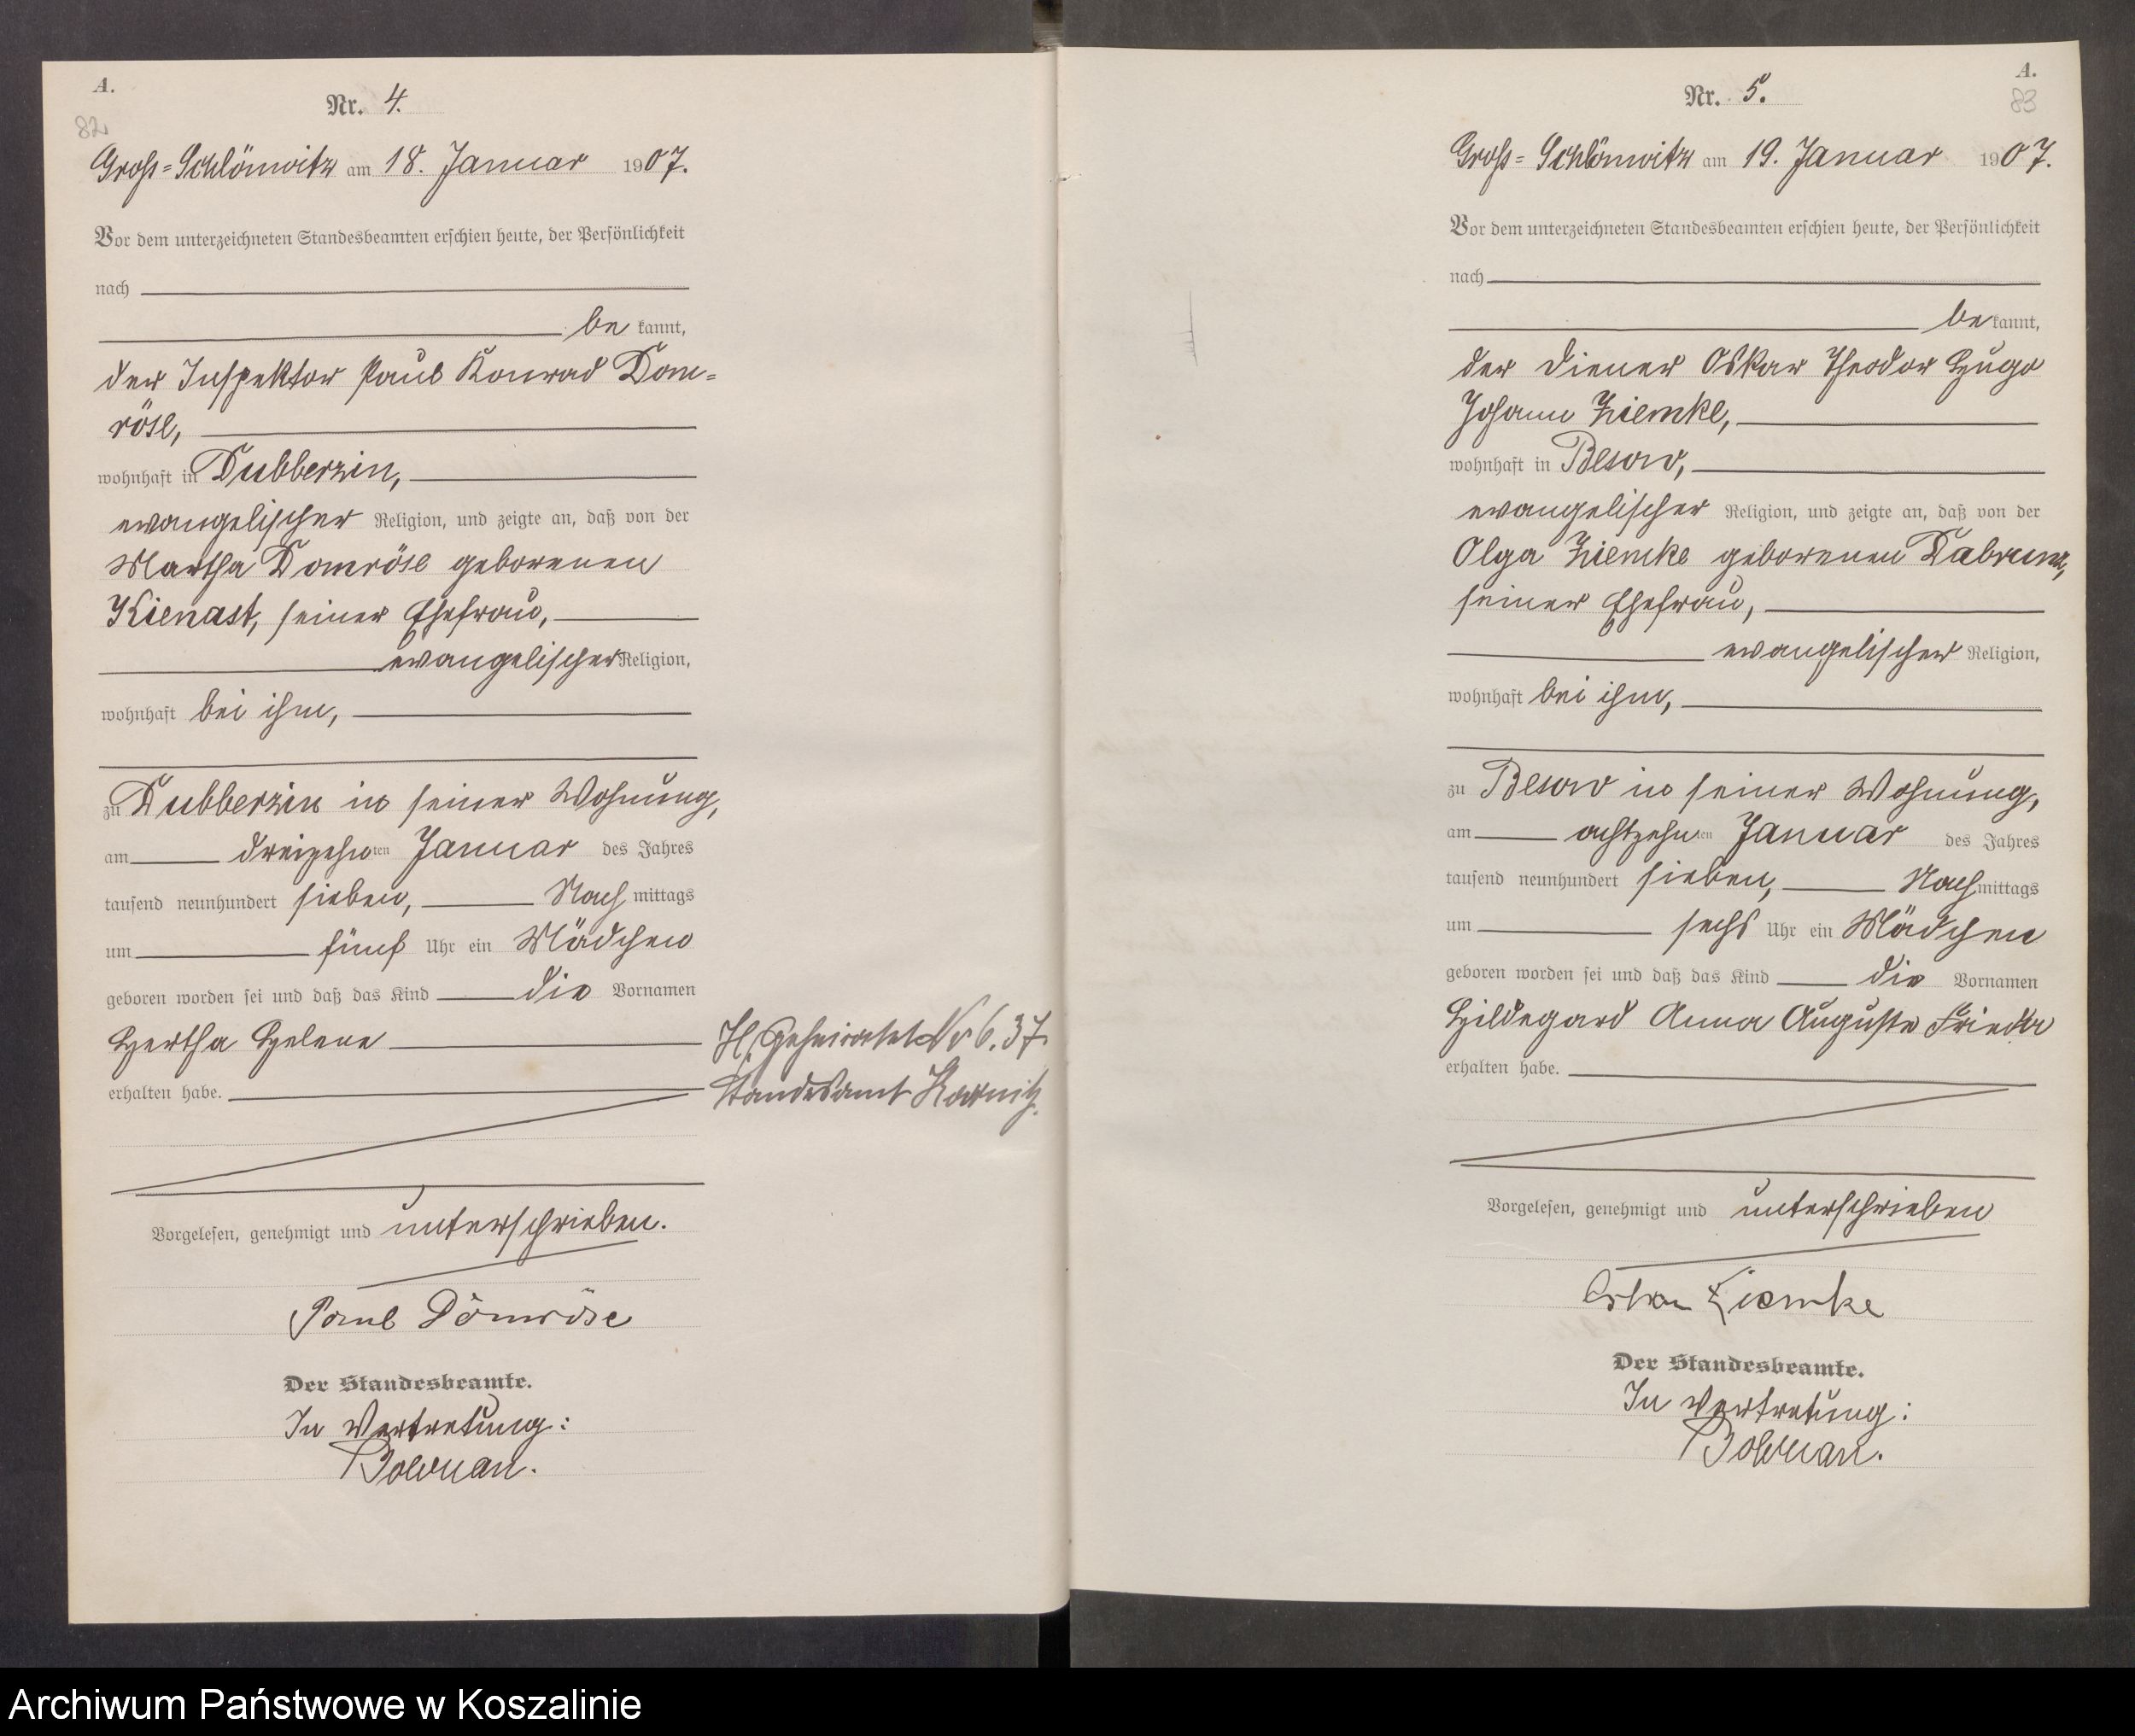 A.
82
Nr. 4.
Groß=Schlönwitz am 18. Januar 1907.
Vor dem unterzeichneten Standesbeamten erschien heute, der Persönlichkeit
nach
be kannt,
der Inspektor Paul Konrad Dom=
röse,
wohnhaft in Dubberzin,
evangelischer Religion, und zeigte an, daß von der
Martha Domröse geborenen
Kienast, seiner Ehefrau,
evangelischer Religion,
wohnhaft bei ihm,
zu Dubberzin in seiner Wohnung,
am dreizehn ten Januar des Jahres
tausend neunhundert sieben, Nach mittags
um fünf Uhr ein Mädchen
geboren worden sei und daß das Kind die Vornamen
Hertha Helene
erhalten habe.
Vorgelesen, genehmigt und unterschrieben.
Paul Domröse
Der Standesbeamte.
In Vertretung:
geheiratet Nr 6.37.
Standesamt
A.
83
Nr. 5.
Groß=Schlönwitz am 19. Januar 1907.
Vor dem unterzeichneten Standesbeamten erschien heute, der Persönlichkeit
nach
be kannt,
der Diener Oskar Theodor Hugo
Johann Ziemke,
wohnhaft in Besow,
evangelischer Religion, und zeigte an, daß von der
Olga Ziemke geborenen Dabrunz,
seiner Ehefrau,
evangelischer Religion,
wohnhaft bei ihm,
zu Besow in seiner Wohnung,
am achtzehn ten Januar des Jahres
tausend neunhundert sieben, Nach mittags
um sechs Uhr ein Mädchen
geboren worden sei und daß das Kind die Vornamen
Hildegard Anna Auguste Frieda
erhalten habe.
Vorgelesen, genehmigt und unterschrieben
Oskar Ziemke
Der Standesbeamte.
In Vertretung:
Archiwum Państwowe w Koszalinie